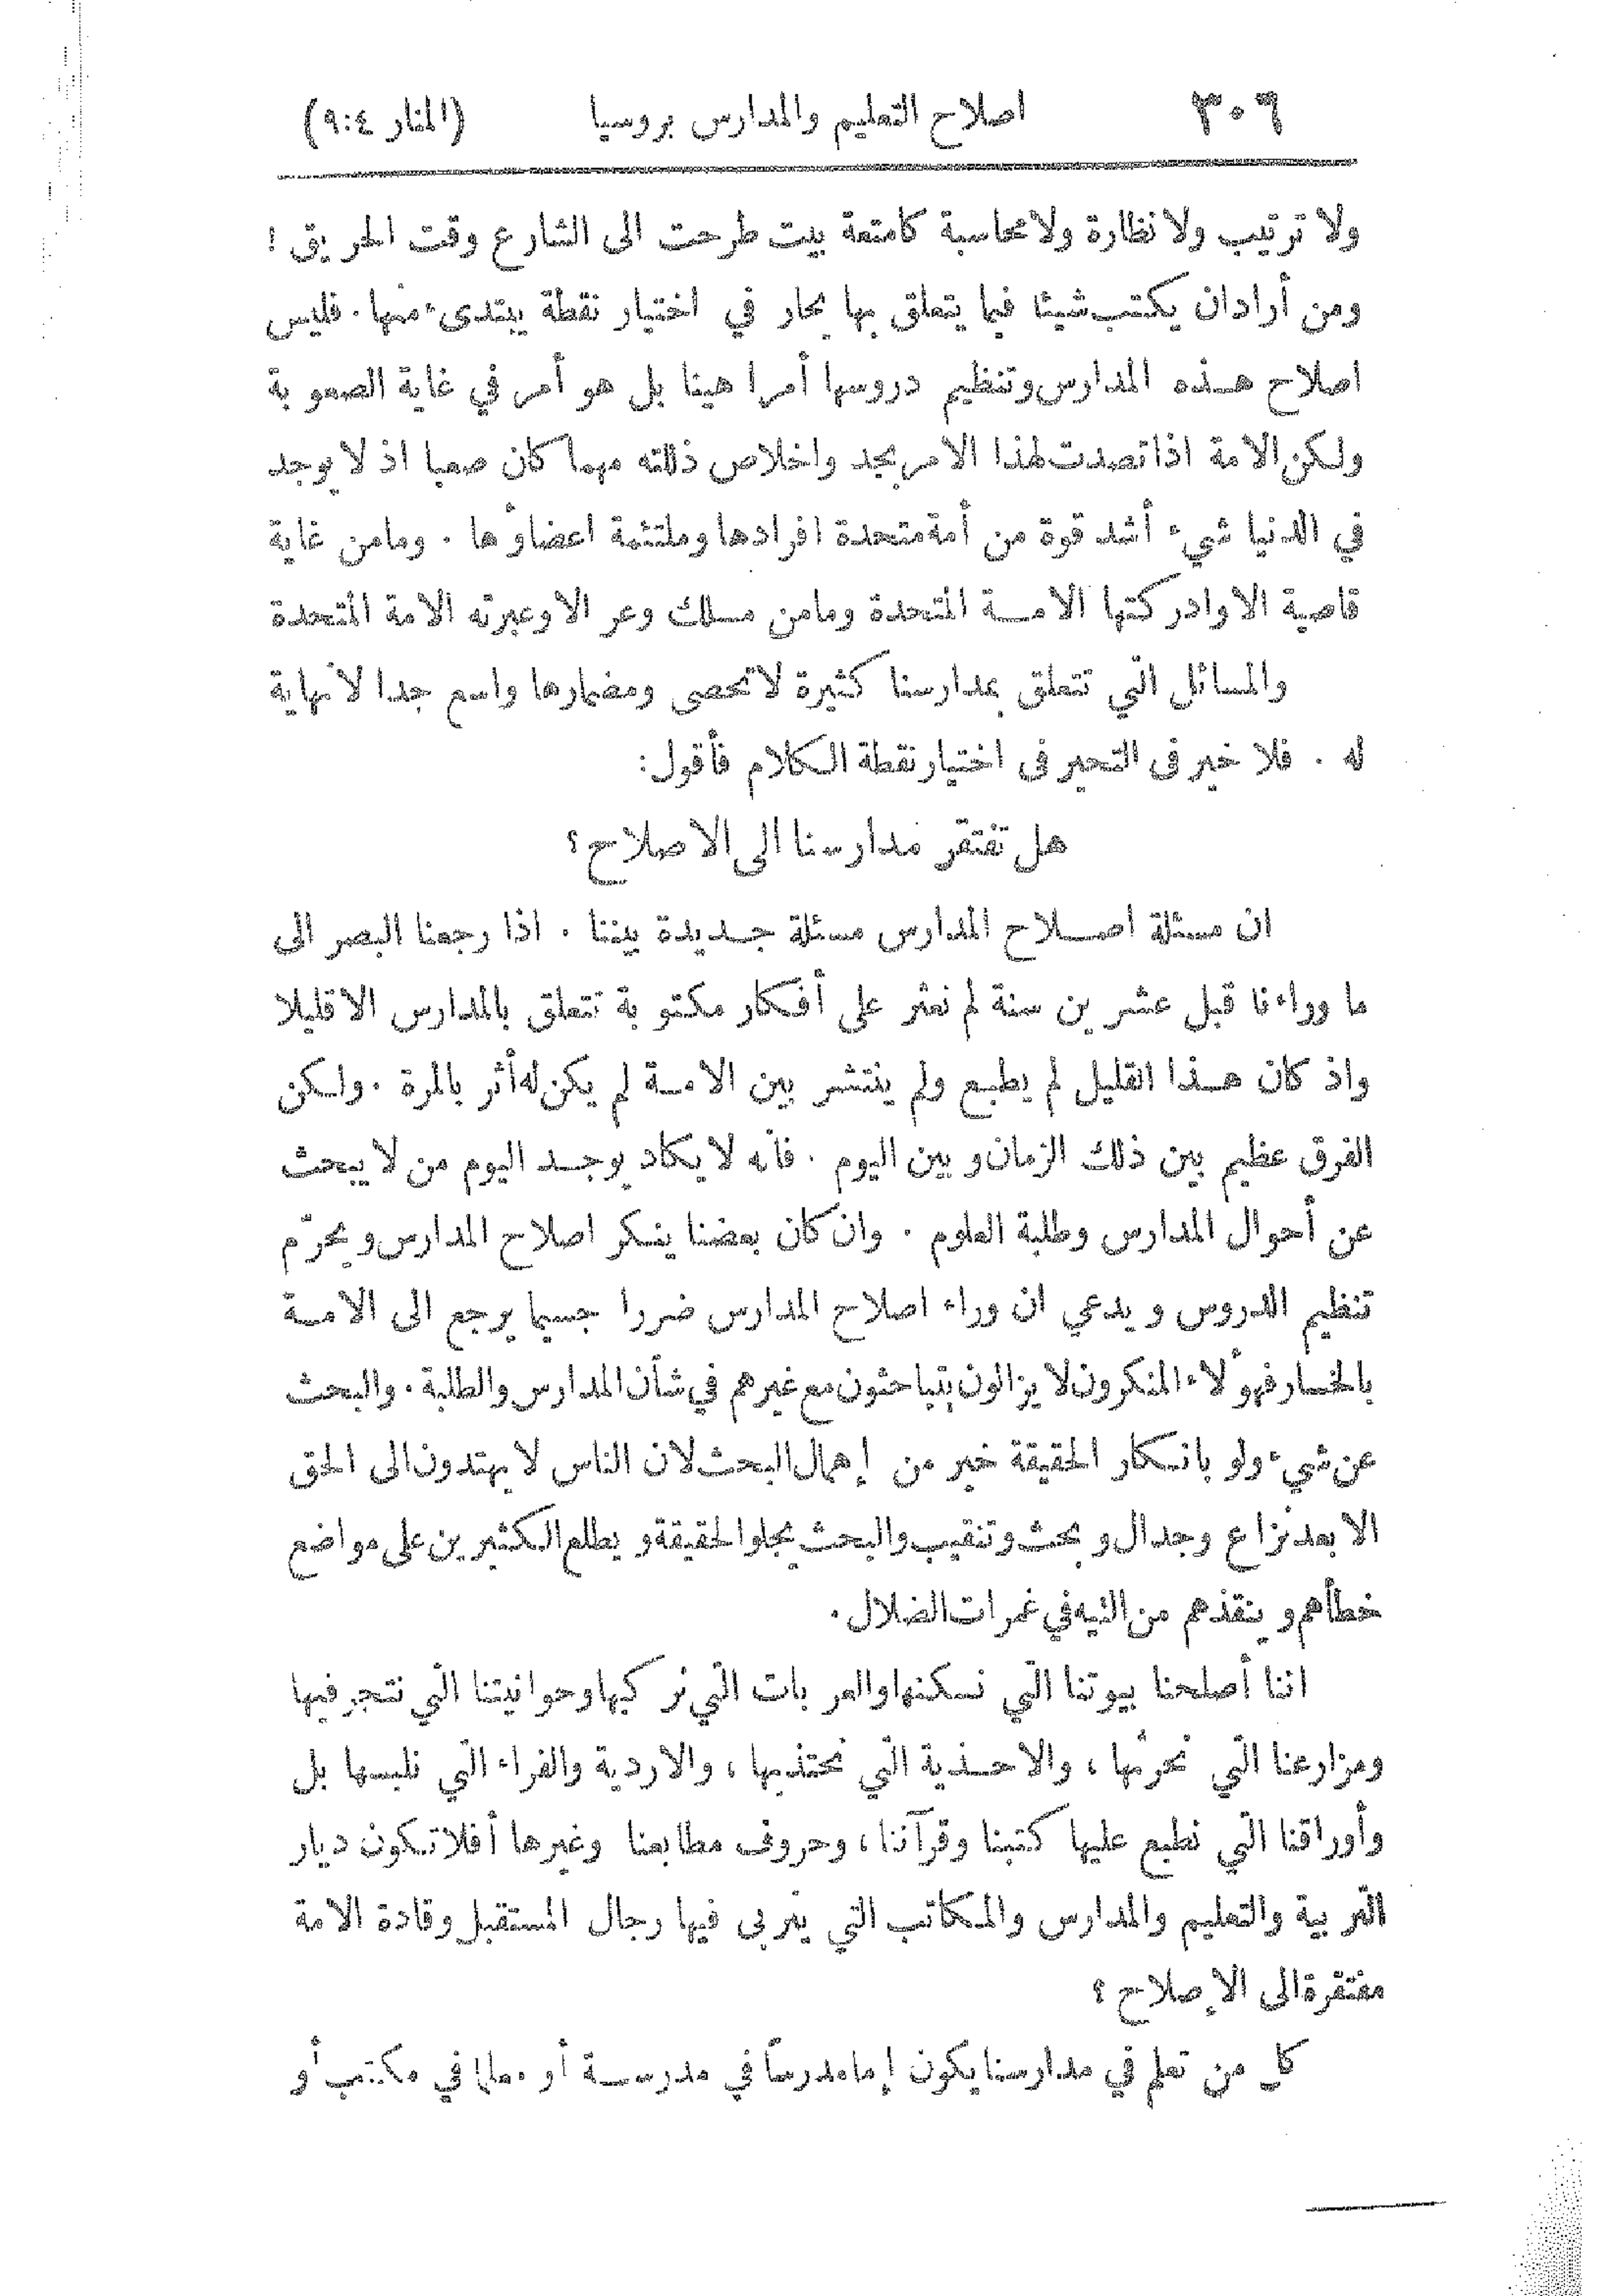 ٣٠٦ اصلاح التعليم والمدارس بروسيا (المنار ٩:٤)
ولا ترتيب ولا نظارة ولا محاسبة كامتعة بيت طرحت الى الشارع وقت الحريق !
ومن أراد ان يكتب شيئا فيما يتعلق بها يحار في اختيار نقطة يبتدىء منها . فليس
اصلاح هذه المدارس وتنظيم دروسها أمرا هينا بل هو أمر في غاية الصعوبة
ولكن الامة اذا تصدت لهذا الامر بجد واخلاص ذللته مهما كان صعبا اذ لا يوجد
في الدنيا شيء أشد قوة من أمة متحدة افرادها وملتئمة اعضاؤها . وما من غاية
قاصية الا وادركتها الامة المتحدة وما من مسلك وعر الا وعبرته الامة المتحدة
والمسائل التي تتعلق بمدارسنا كثيرة لا تحصى ومضمارها واسع جدا لا نهاية
له . فلا خير في التحير في اختيار نقطة الكلام فأقول:
هل تفتقر مدارسنا الى الاصلاح ؟
ان مسئلة اصلاح المدارس مسئلة جديدة بيننا . اذا رجعنا البصر الى
ما وراءنا قبل عشرين سنة لم نعثر على أفكار مكتوبة تتعلق بالمدارس الا قليلا
واذ كان هذا القليل لم يطبع ولم ينتشر بين الامة لم يكن له أثر بالمرة . ولكن
الفرق عظيم بين ذلك الزمان وبين اليوم . فانه لا يكاد يوجد اليوم من لا يبحث
عن أحوال المدارس وطلبة العلوم . وان كان بعضنا ينكر اصلاح المدارس ويحرّم
تنظيم الدروس ويدعي ان وراء اصلاح المدارس ضررا جسيما يرجع الى الامة
بالخسار فهؤلاء المنكرون لا يزالون يتباحثون مع غيرهم في شأن المدارس والطلبة . والبحث
عن شيء ولو بانكار الحقيقة خير من إهمال البحث لان الناس لا يهتدون الى الحق
الا بعد نزاع وجدال وبحث وتنقيب والبحث يجلو الحقيقة ويطلع الكثيرين على مواضع
خطأهم وينقذهم من التيه في غمرات الضلال .
اننا أصلحنا بيوتنا التي نسكنها والعربات التي نركبها وحوانيتنا التي نتجر فيها
ومزارعنا التي نحرثها ، والاحذية التي نحتذيها ، والاردية والفراء التي نلبسها بل
وأوراقنا التي نطبع عليها كتبنا وقرآننا ، وحروف مطابعنا وغيرها أفلا تكون ديار
التربية والتعليم والمدارس والمكاتب التي يتربى فيها رجال المستقبل وقادة الامة
مفتقرة الى الإصلاح ؟
كل من تعلم في مدارسنا يكون إما مدرسًا في مدرسة أو معلما في مكتب أو